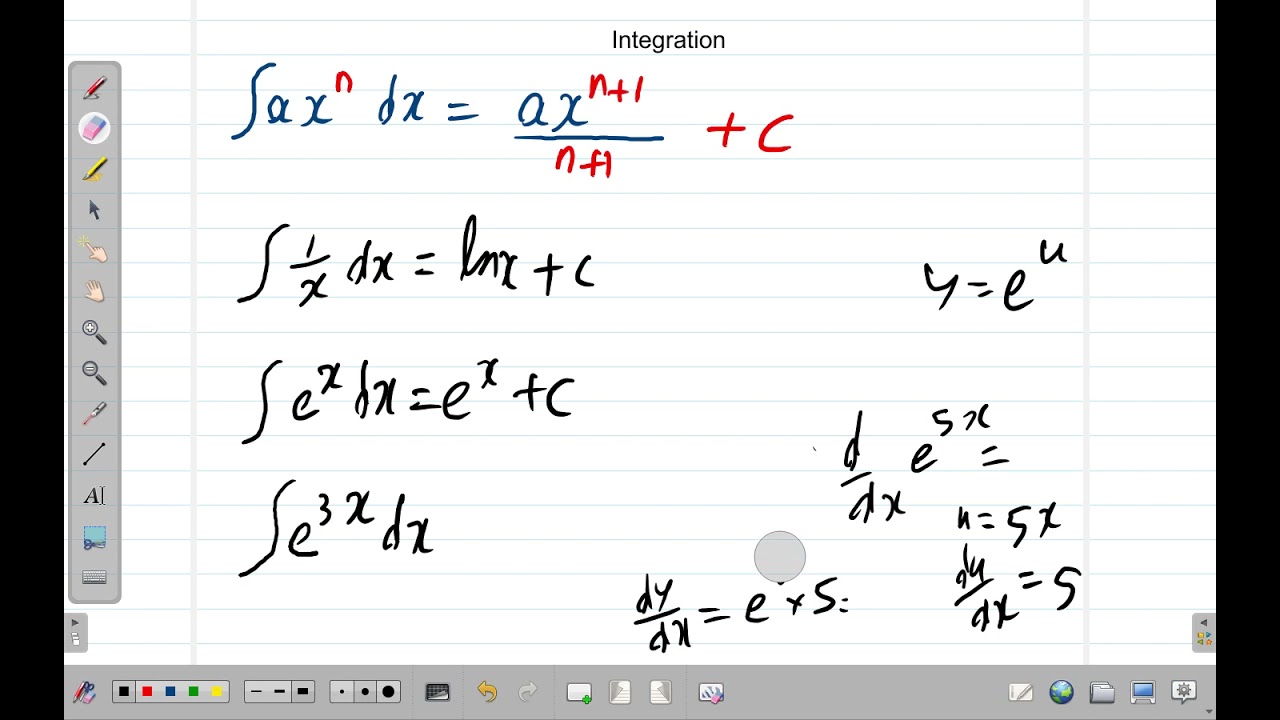 Integration
∫axⁿ dx = axⁿ⁺¹/n+1 + C
∫ 1/x dx = lnx + c
y = eᵘ
∫ eˣ dx = eˣ + c
d/dx e⁵ˣ =
∫ e³ˣ dx
u = 5x
du/dx = 5
dy/dx = e × 5 =
A